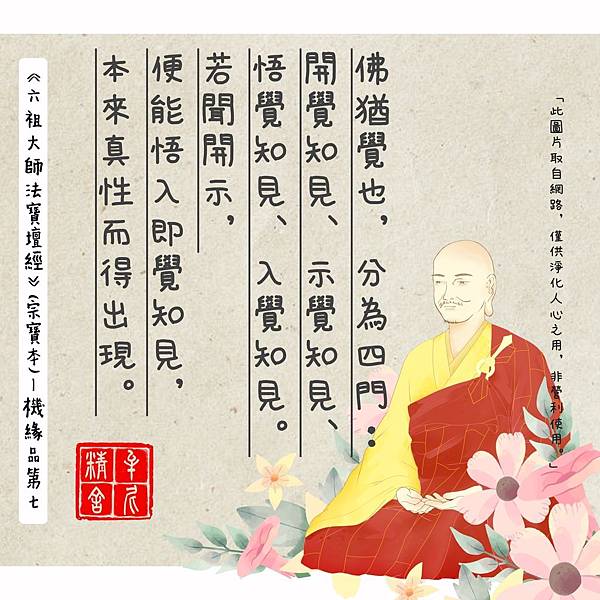 「此圖片取自網路，僅供淨化人心之用，非營利使用。」
佛猶覺也，分為四門：
開覺知見、示覺知見、
悟覺知見、入覺知見。
若聞開示，
便能悟入即覺知見，
本來真性而得出現。
《六祖大師法寶壇經》(宗寶本)－機緣品第七
精舍